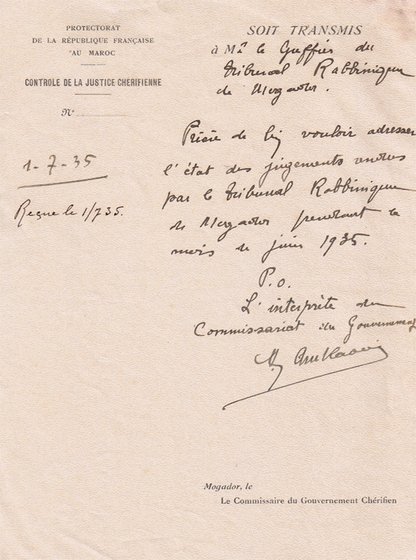 PROTECTORAT
DE LA RÉPUBLIQUE FRANÇAISE
AU MAROC
CONTROLE DE LA JUSTICE CHERIFIENNE
N°
1-7-35
Reçue le 1/735.
SOIT TRANSMIS
à Mr le Greffier du
Tribunal Rabbinique
de Mogador.
Prière de bien vouloir adresser
l'état des jugements rendus
par le Tribunal Rabbinique
de Mogador pendant le
mois de juin 1935.
P.o.
L'interprète du
Commissariat du Gouvernement
Mogador, le
Le Commissaire du Gouvernement Chérifien